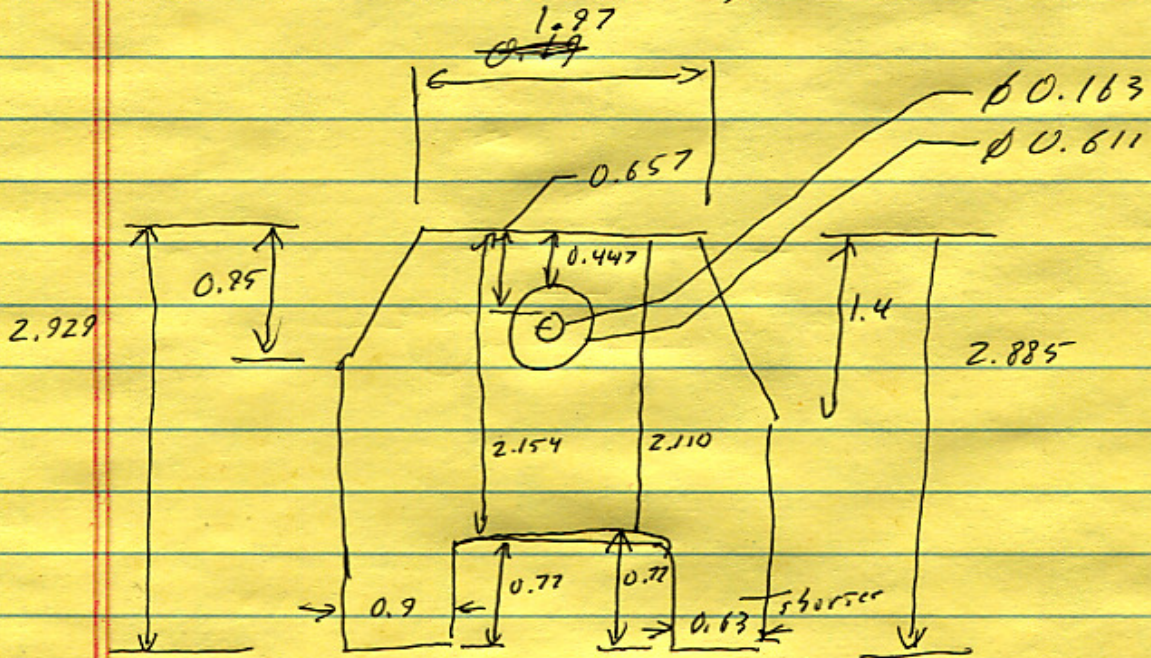 1.97
0.69
ø 0.163
ø 0.611
0.657
0.447
0.85
1.4
2.929
2.885
2.154
2.110
0.77
0.77
0.9
0.63
shorter